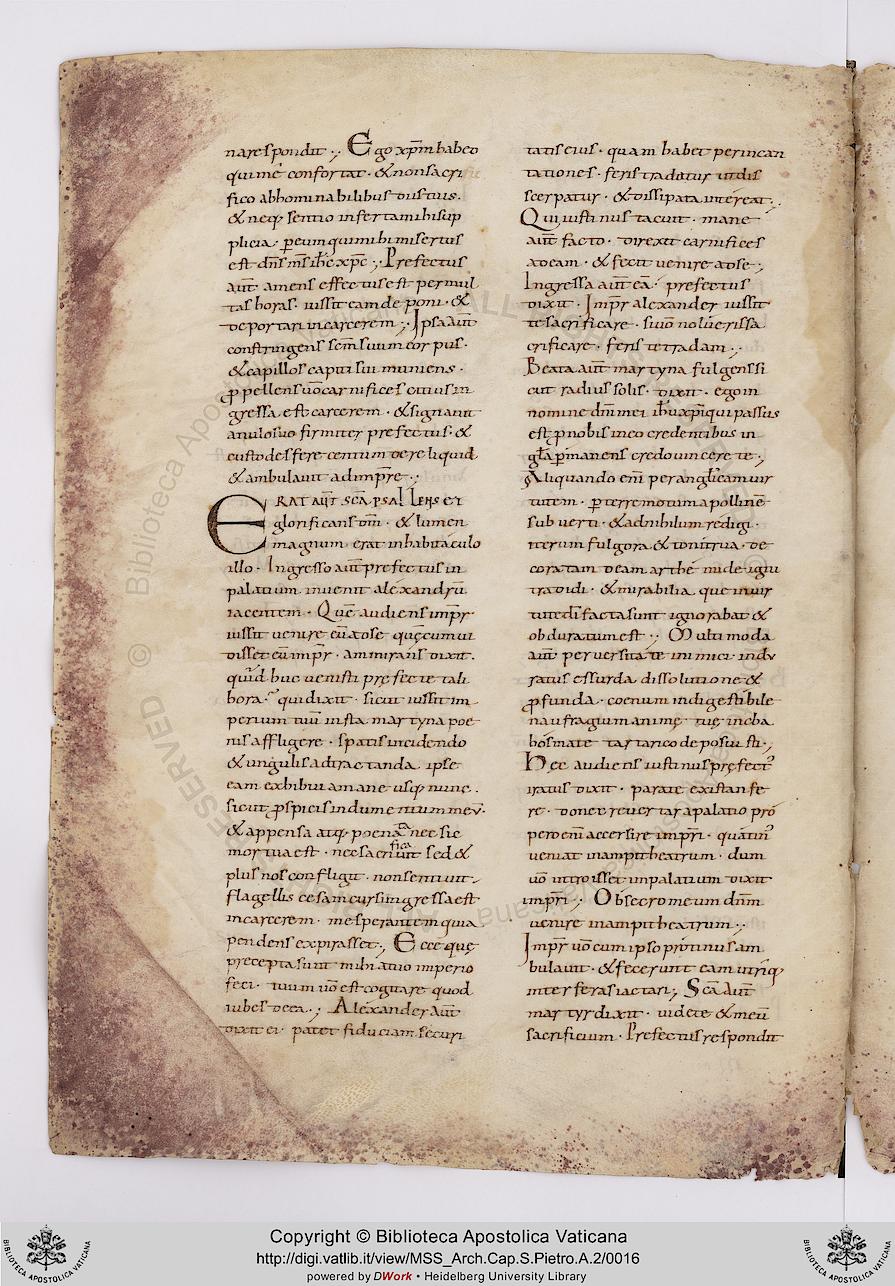 narespondit ·,· Ego xp̄m habeo
qui me confortat · & non sacri
fico abhominabilibus diis tuis ·
& neq; sentio inferta mihi sup
plicia · p̄ eum qui mihi misertus
est dn̄s m̄s ih̄c xp̄c ·,· Prefectus
aūt · amens effectus est per mul
tas horas · iussit eam deponi · &
deportari in carcerem ·,· Ipsa aūt
constringens sc̄m suum corpus ·
& capillos capiti sui muniens ·
p̄pellens uō carnifices citius in
gressa est carcerem · & signauit
anulo suo firmiter prefectus · &
custodes fere centum dereliquid
& ambulauit ad imp̄re ·,·
ERAT AŪT SCĀ PSALLENS ET
glorificans dm̄ · & lumen
magnum erat in habitaculo
illo · Ingresso aūt prefectus in
palatium inuenit alexandrū
iacentem · Quē audiens imp̄r
iussit uenire eū ad se · quęcum ui
disset eū imp̄r · ammirans dixit ·
quid huc uenisti pręfecte tali
hora · qui dixit · sicut iussit im
perium tuū iusta martyna poe
nis affligere · spatis incidendo
& ungulis adtractanda · ipse
eam exhibui a mane usq; nunc ·
sicut p̄spicis indumentum meū ·
& appensa atq; poena nec sic
mortua est · nec sacrificauit sed &
plus nos confligit · non sentiuit
flagellis cesa m cursu ingressa est
in carcerem · me sperantem quia
pendens expirasset ·, Ecce quę
precepta sunt mihi a tuo imperio
feci · tuum uō est cogitare quod
iubes de ea ·,· Alexander aūt
dixit ei · patet fiduciam securi
tatis eius · quam habet per incan
tationes · feris tradatur ut dis
scerpatur · & dissipata intereat ·,
Qui iustinus tacuit · mane
aūt facto · direxit carnifices
ad eam · & fecit uenire ad se ·,
Ingressa aūt eā · prefectus
dixit · Imp̄r alexander iussit
te sacrificare · si uō nolueris sa
crificare · feris te tradam ·,·
Beata aūt martyna fulgens si
cut radius solis · dixit · ego in
nomine dn̄i mei ih̄u xp̄i qui passus
est p̄ nobis in eo credentibus in
gl̄a p̄manens credo uincere te ·,
Aliquando eni per anglicam uir
tutem · p̄ terre motum apollinē
subuerti · & ad nihilum redigi ·
iterum fulgora & tonitrua · de
coratam deam arthemide igni
tradidi · & mirabilia que in uir
tute dī facta sunt ignorabat &
obduratum est ·,· Multimoda
aūt peruersitate inimici · indu
ratus es surda dissolutione &
p̄funda · coenum indigestibile
naufragium animę tuę in cha
hosmate tartarico deposuisti ·,
Hęc audiens iustinus pręfect᾿
iratus dixit · parate existan fe
re · donec reuertar a palatio pro
pero eni accersire imp̄ri · quatin᾿
ueniat in ampitheatrum · dum
uō introisset in palatium dixit
imp̄ri ·, Obsecro meum dn̄m
uenire in ampitheatrum ·,·
Imp̄r uō cum ipso protinus am
bulauit · & fecerunt eam utriq;
inter feras iactari ·, Scā aūt
martyr dixit · uidete & meū
sacrificium · Prefectus respondit
Copyright © Biblioteca Apostolica Vaticana
http://digi.vatlib.it/view/MSS_Arch.Cap.S.Pietro.A.2/0016
powered by DWork • Heidelberg University Library
BIBLIOTECA APOSTOLICA VATICANA
BIBLIOTECA APOSTOLICA VATICANA